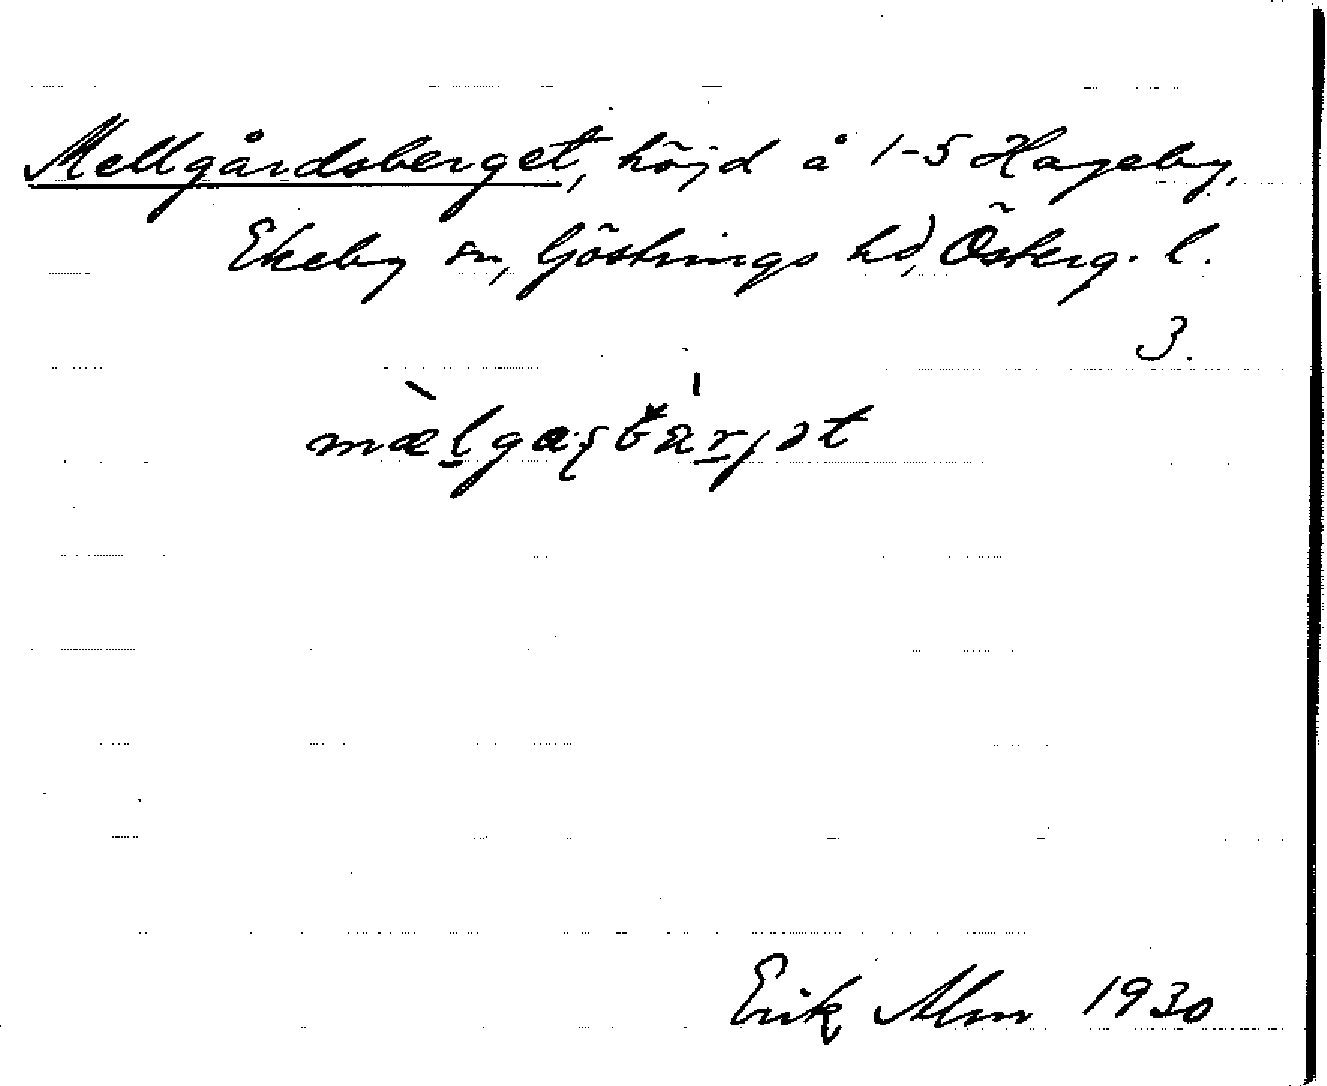 Mellgårdsberget, höjd å 1-5 Hageby,
Ekeby sn, Göstrings hd, Österg. l.
3.
Erik Alm 1930